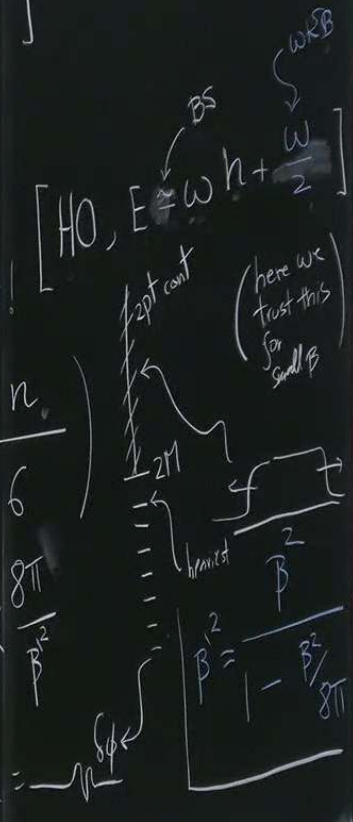 ]
WKB
BS
[HO, E ≅ ω n + ω/2]
2pt cont
(here we
trust this
for
small β)
n
6
)
2M
heaviest
8π
β'²
β'² = β² / (1 - β²/8π)
δφ
=